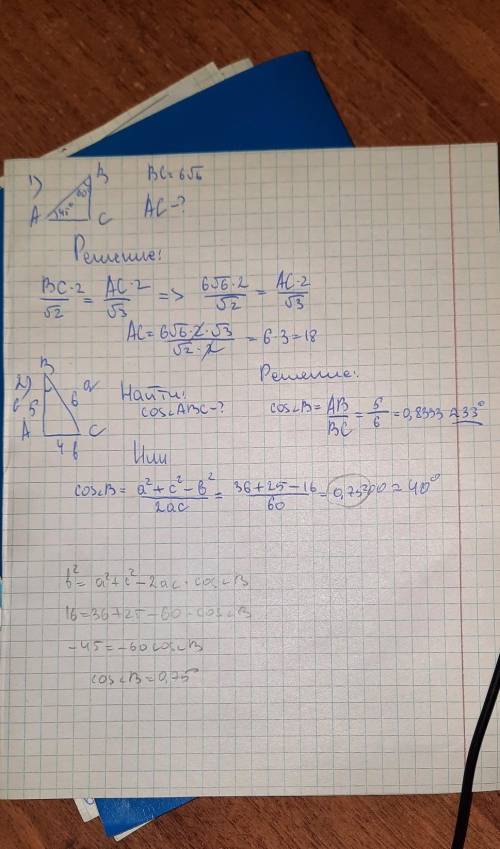 1) B BC = 6√6
A 45° 60° C AC - ?
Решение:
BC·2/√2 = AC·2/√3 => 6√6·2/√2 = AC·2/√3
AC = 6√6·2·√3/√2·2 = 6·3 = 18
2) B
c 5 6 a
A 4 b C
Найти:
cos∠ABC - ?
Решение:
cos∠B = AB/BC = 5/6 = 0,8333 ≈ 33°
Или
cos∠B = a²+c²-b²/2ac = 36+25-16/60 = 0,7500 ≈ 40°
b² = a²+c²-2ac·cos∠B
16 = 36+25-60·cos∠B
-45 = -60cos∠B
cos∠B = 0,75